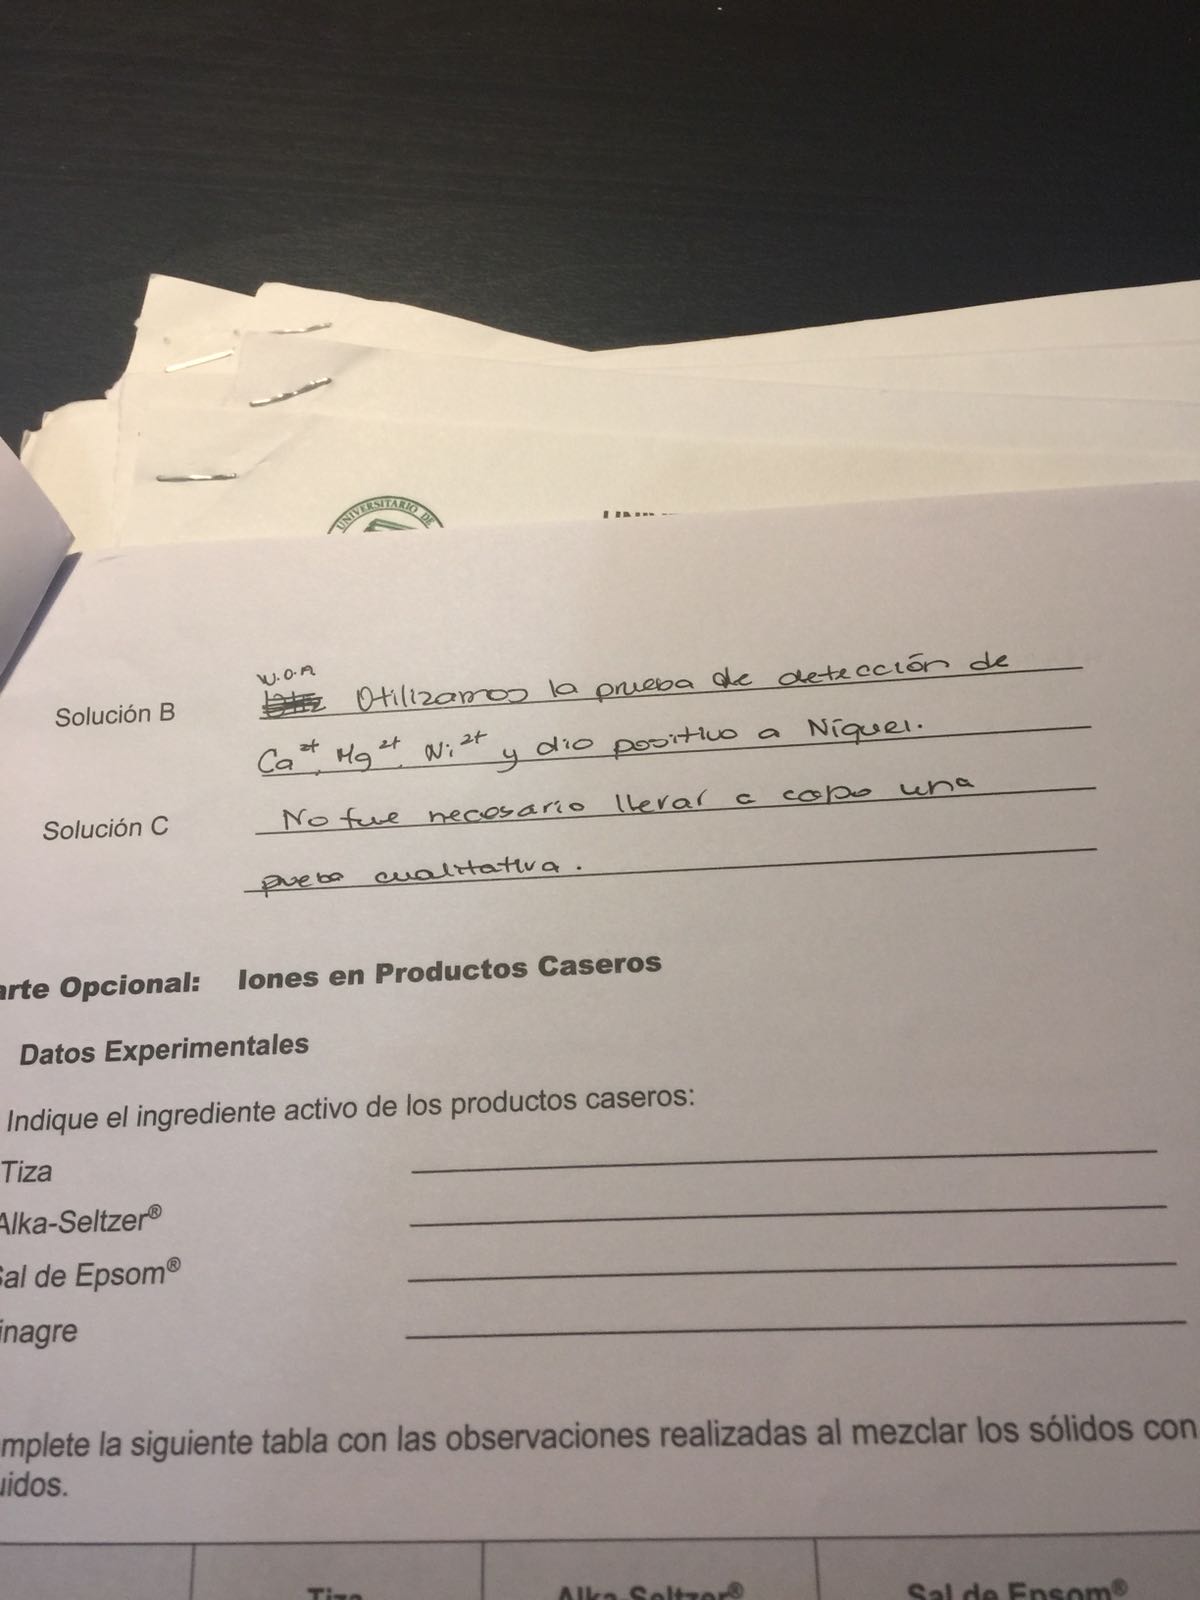 UNIVERSITARIO DE
W.O.A
Solución B Utilizamos la prueba de detección de
Ca²⁺, Mg²⁺, Ni²⁺ y dio positivo a Níquel.
Solución C No fue necesario llevar a capo una
prueba cualitativa.
arte Opcional: Iones en Productos Caseros
Datos Experimentales
Indique el ingrediente activo de los productos caseros:
Tiza
Alka-Seltzer®
Sal de Epsom®
inagre
mplete la siguiente tabla con las observaciones realizadas al mezclar los sólidos con
uidos.
Tiza Alka-Seltzer® Sal de Epsom®